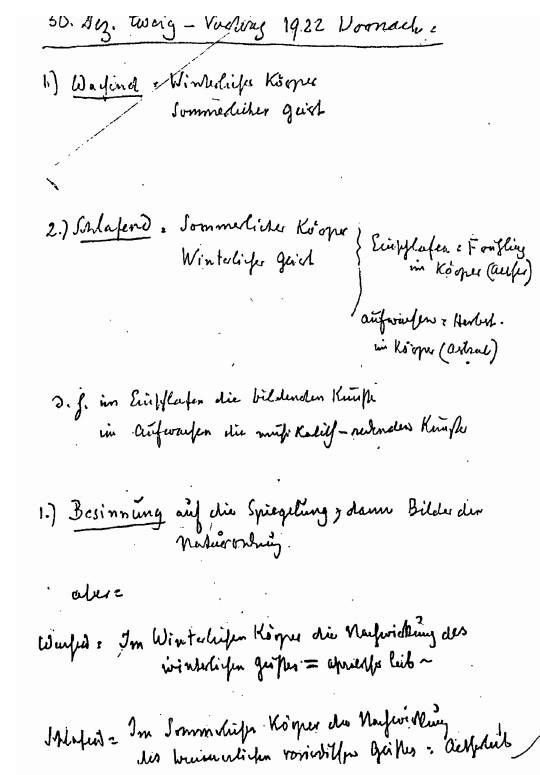 30. Dez. Zweig - Vortrag 1922 Dornach:
1.) Wachend: Winterlicher Körper
Sommerlicher Geist
2.) Schlafend: Sommerlicher Körper
Winterlicher Geist
Einschlafen: Frühling
im Körper (Aether)
Aufwachen: Herbst.
im Körper (Astral)
d. h. im Einschlafen die bildenden Künste
im Aufwachen die musikalisch-redenden Künste
1.) Besinnung auf die Spiegelung, dann Bilder der
Naturordnung.
aber:
Wachend: Im Winterlichen Körper die Nachwirkung des
winterlichen Geistes = Leib ~
Schlafend = Im Sommerlichen Körper die Nachwirkung
des Geistes = Aetherleib